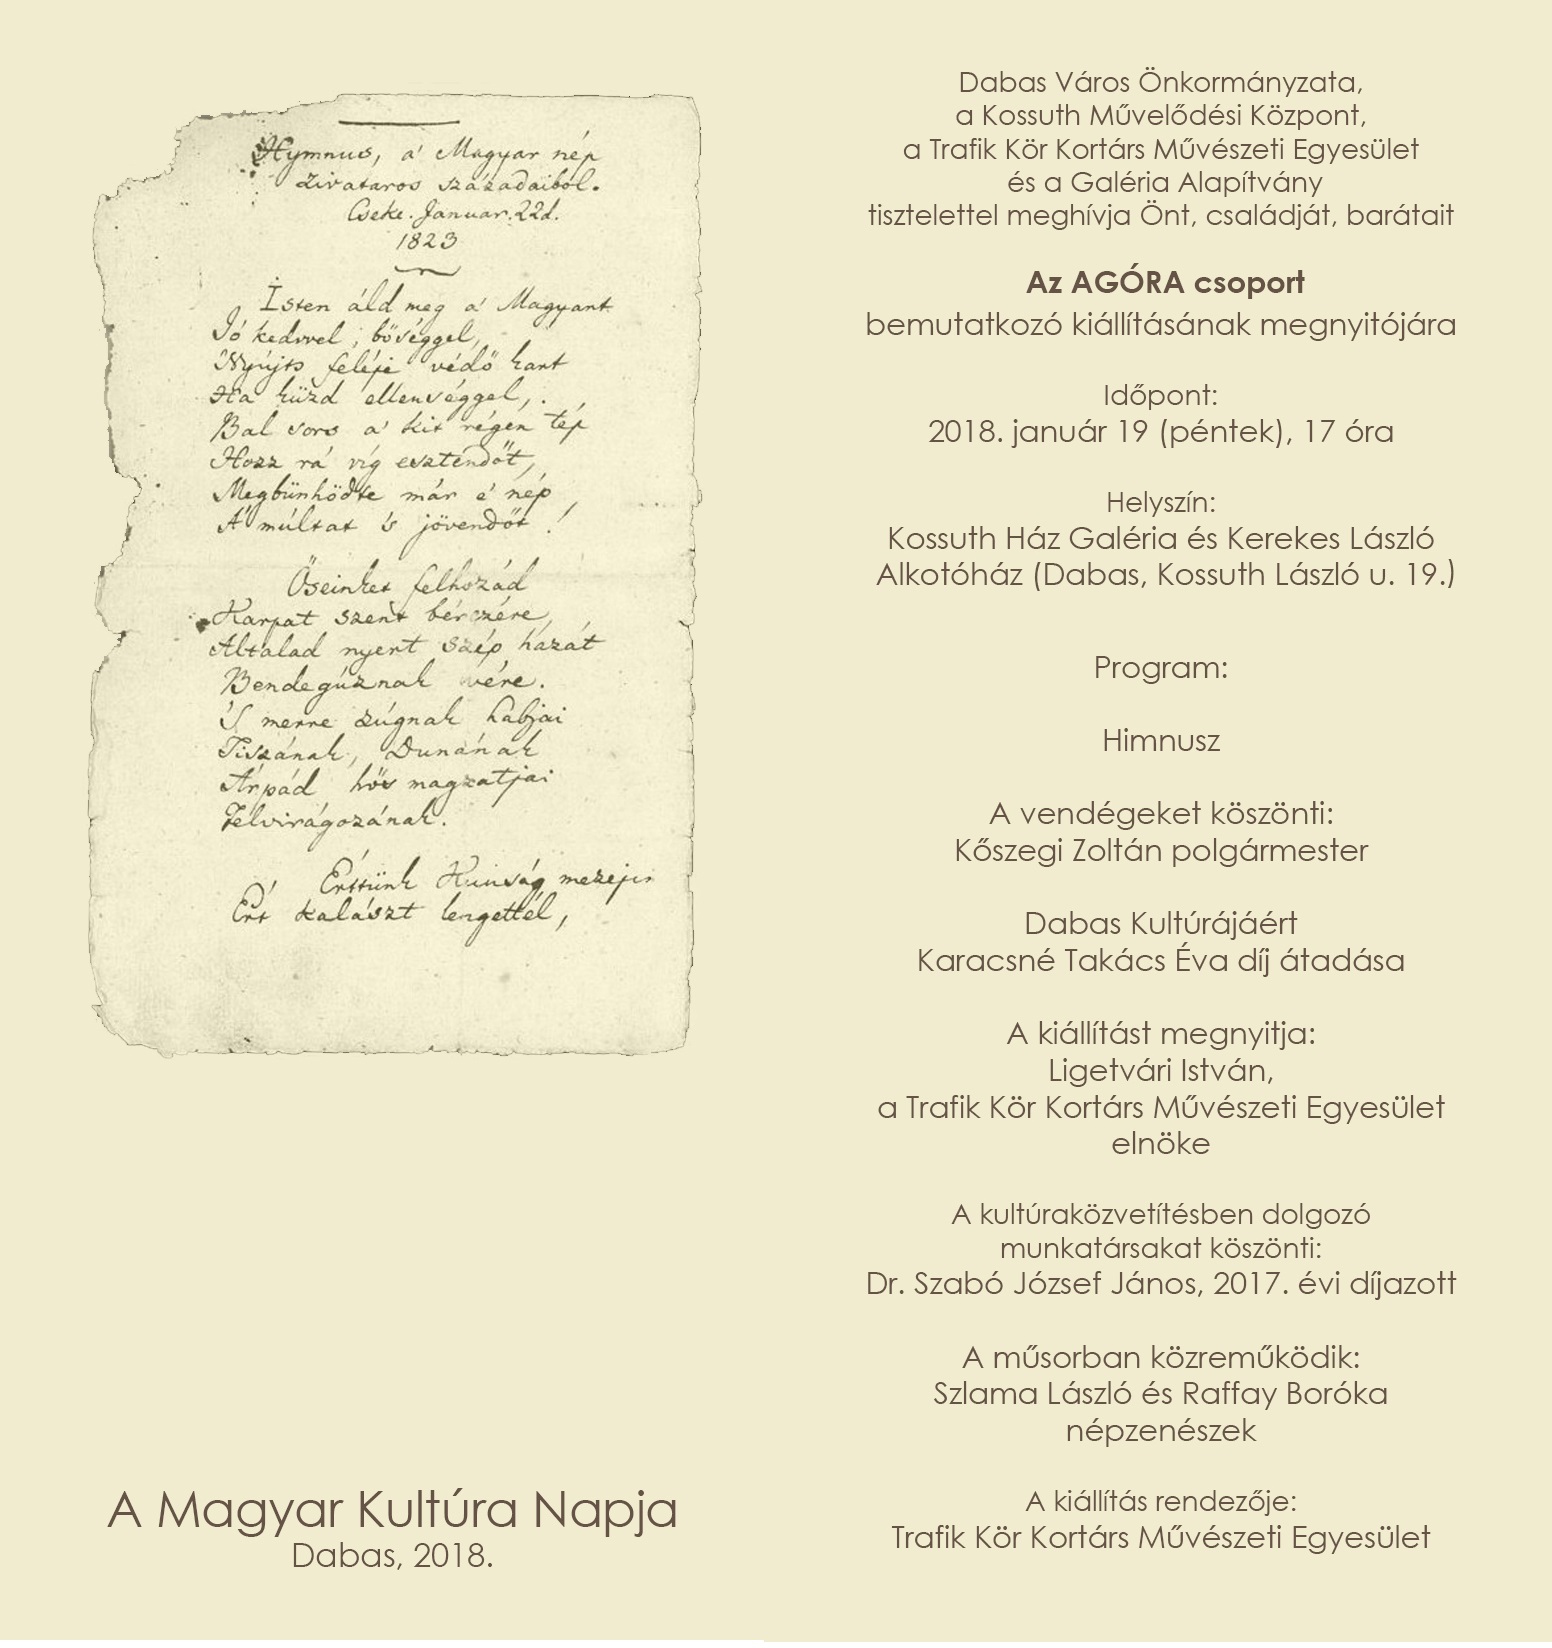 Hymnus, a' Magyar nép
zivataros századaiból.
Cseke. Januar. 22d.
1823
Isten áld meg a' Magyart
Jó kedvvel, bőséggel,
Nyújts feléje védő kart
Ha küzd ellenséggel,
Bal sors a' kit régen tép
Hozz rá víg esztendőt,
Megbünhödte már e' nép
A' múltat 's jövendőt!
Őseinket felhozád
Karpat szent bérczére,
Altalad nyert szép hazát
Bendegúznak vére.
'S merre zúgnak habjai
Tiszának, Dunának
Árpád hős magzatjai
Felvirágozának.
Érttünk Kunság mezejin
Ért kalászt lengettél,
A Magyar Kultúra Napja
Dabas, 2018.
Dabas Város Önkormányzata,
a Kossuth Művelődési Központ,
a Trafik Kör Kortárs Művészeti Egyesület
és a Galéria Alapítvány
tisztelettel meghívja Önt, családját, barátait
Az AGÓRA csoport
bemutatkozó kiállításának megnyitójára
Időpont:
2018. január 19 (péntek), 17 óra
Helyszín:
Kossuth Ház Galéria és Kerekes László
Alkotóház (Dabas, Kossuth László u. 19.)
Program:
Himnusz
A vendégeket köszönti:
Kőszegi Zoltán polgármester
Dabas Kultúrájáért
Karacsné Takács Éva díj átadása
A kiállítást megnyitja:
Ligetvári István,
a Trafik Kör Kortárs Művészeti Egyesület
elnöke
A kultúraközvetítésben dolgozó
munkatársakat köszönti:
Dr. Szabó József János, 2017. évi díjazott
A műsorban közreműködik:
Szlama László és Raffay Boróka
népzenészek
A kiállítás rendezője:
Trafik Kör Kortárs Művészeti Egyesület